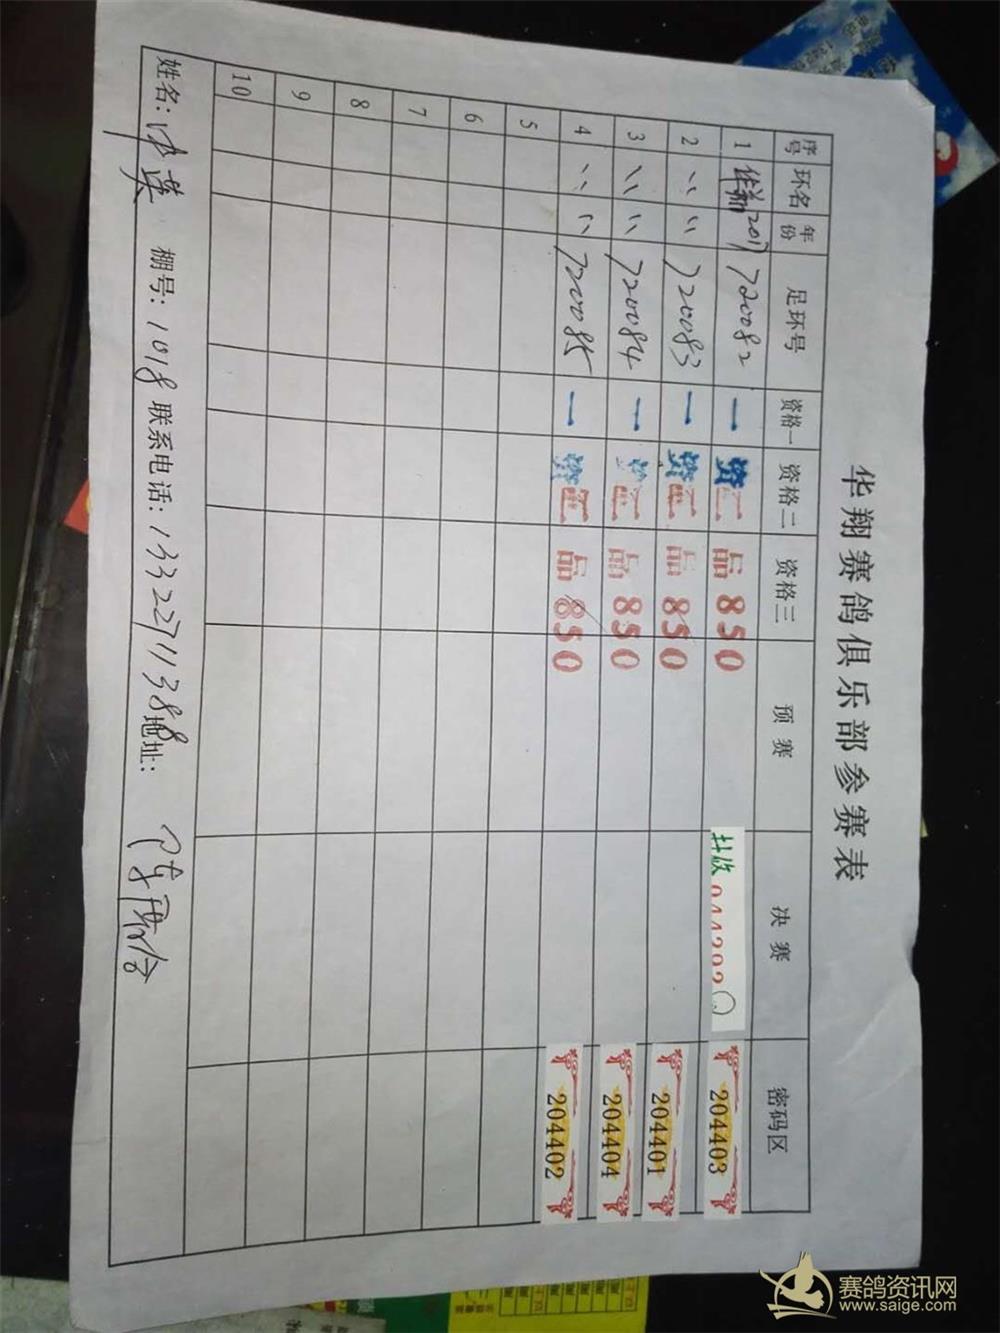 华翔赛鸽俱乐部参赛表
序号 环名 年份 足环号 资格一 资格二 资格三 预赛 决赛 密码区
1 华翔 2017 720082 一 资二 品850 204403
2 〃 〃 720083 一 资二 品850 204401
3 〃 〃 720084 一 资二 品850 204404
4 〃 〃 720085 一 资二 品850 204402
5
6
7
8
9
10
姓名: 棚号: 1018 联系电话: 13327111388 地址:
赛鸽资讯网
www.saige.com